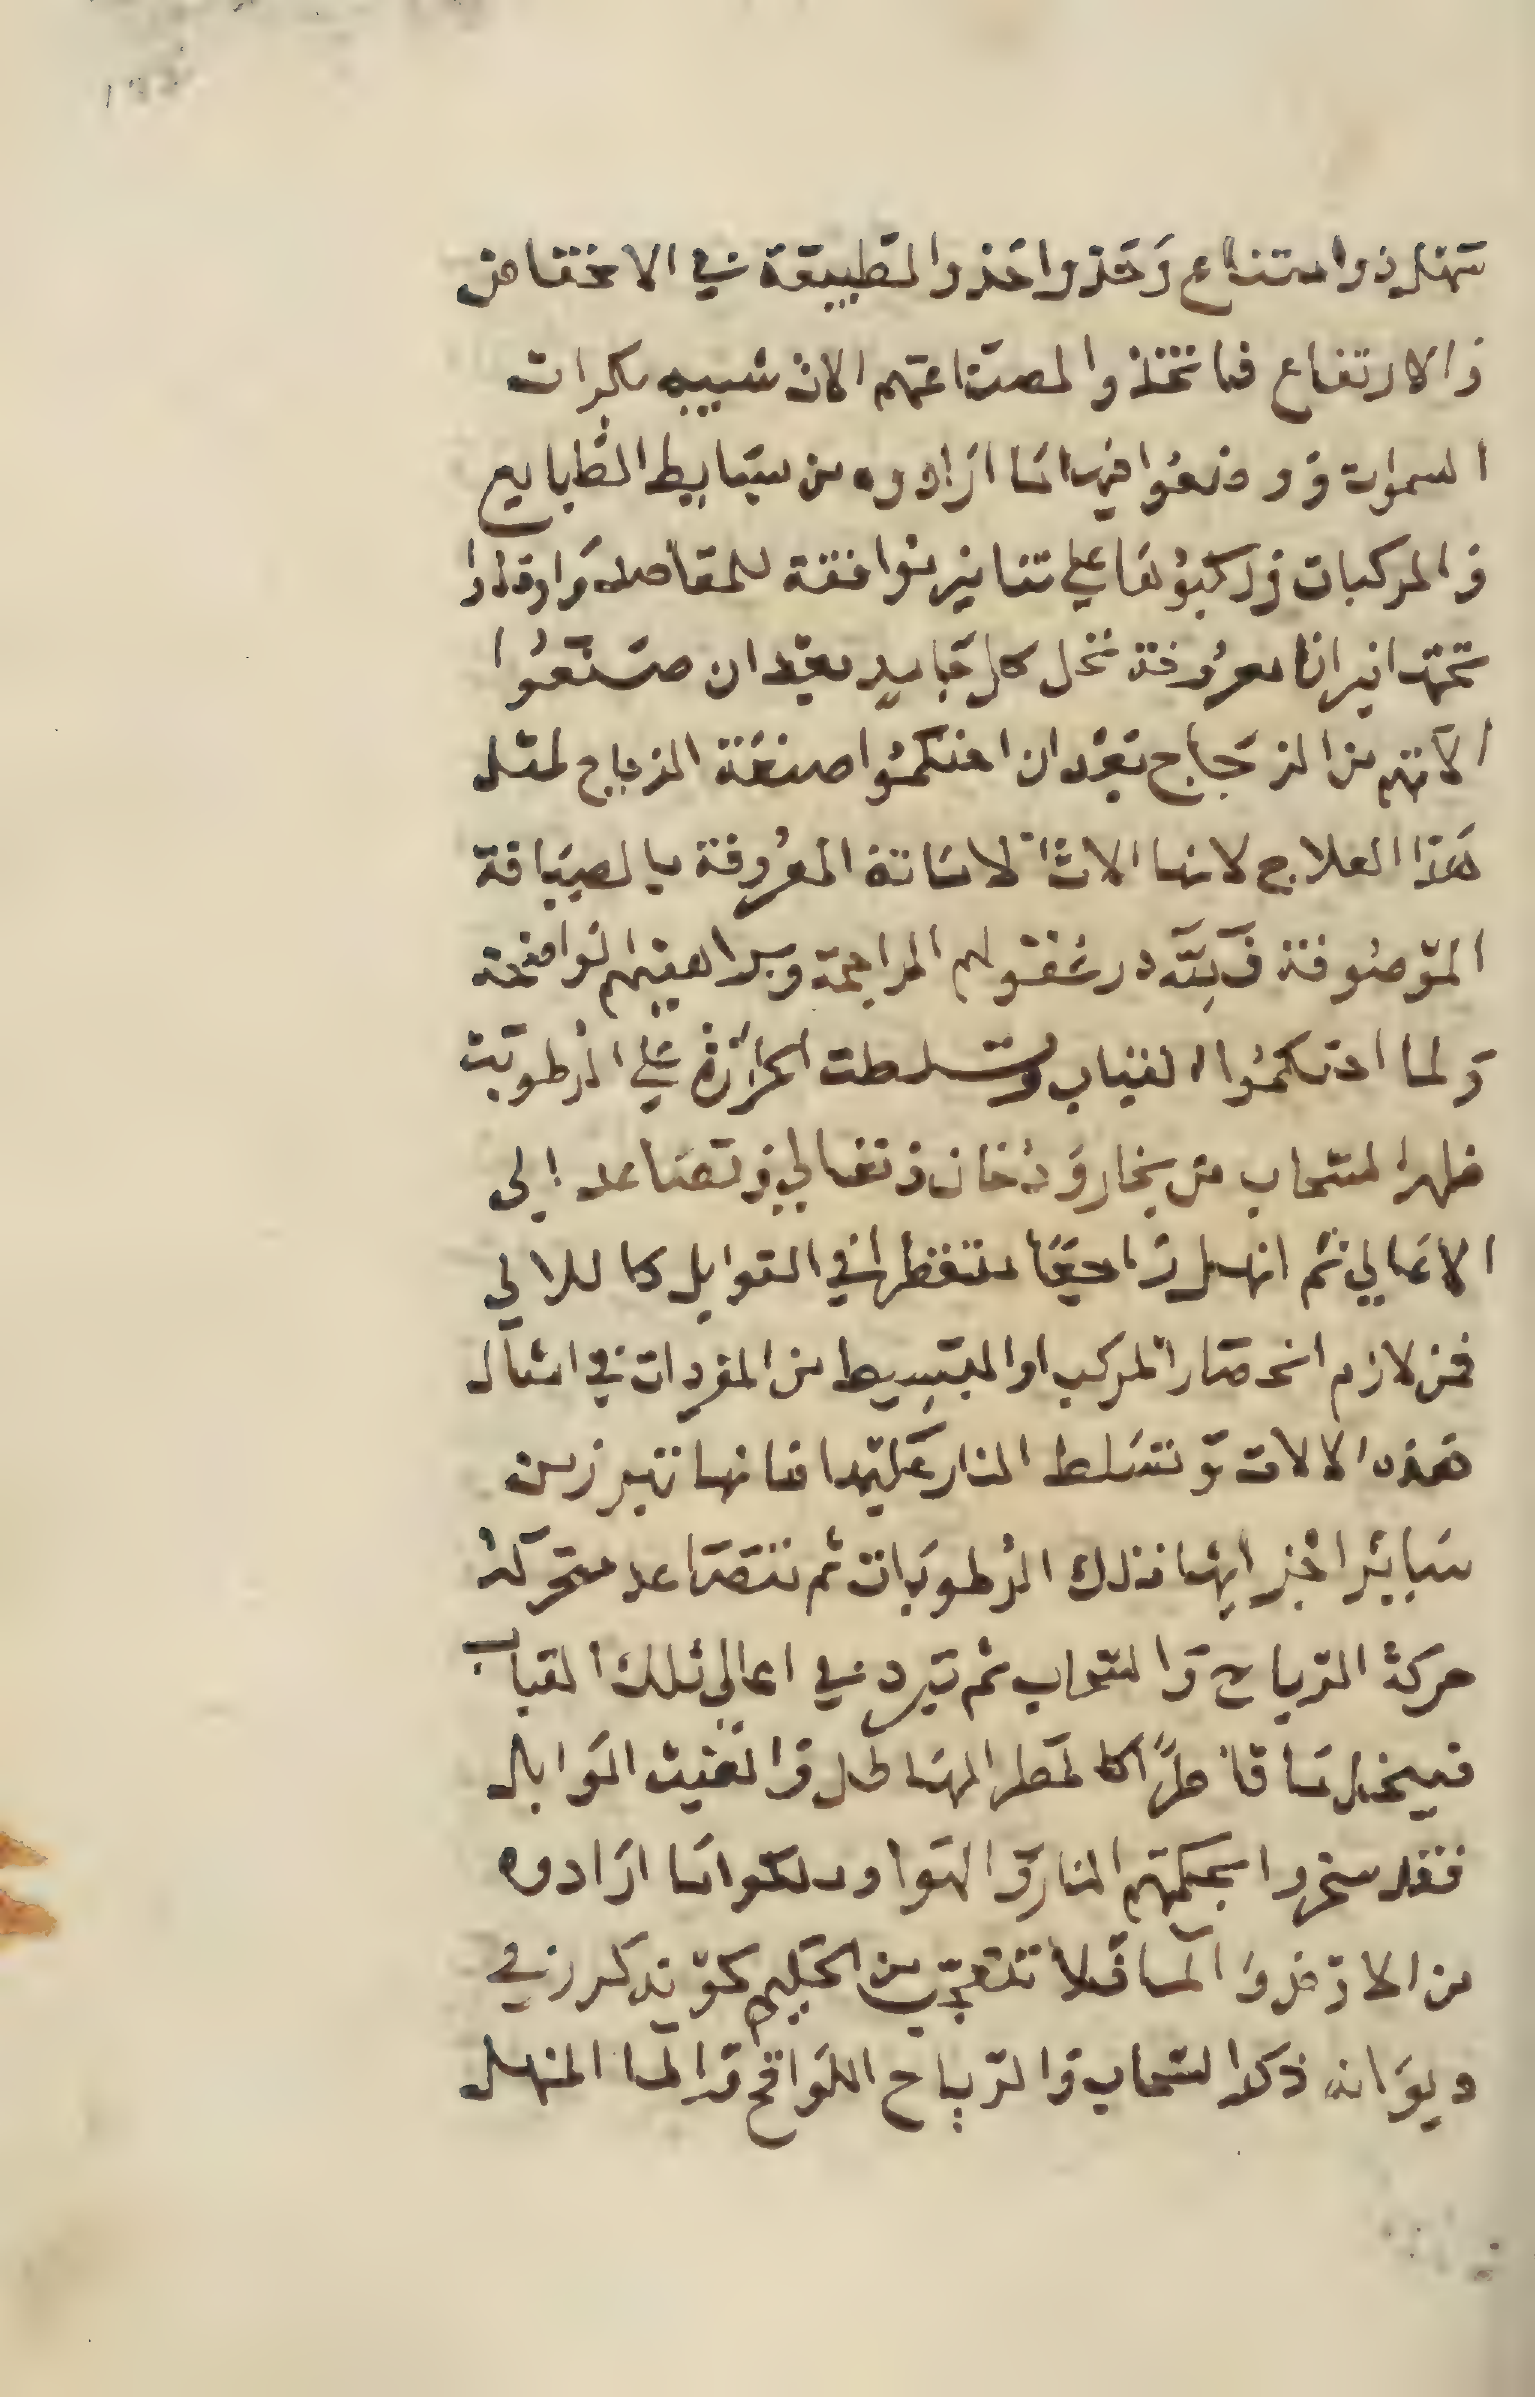 وامتناع وحذوا حذو الطبيعة في الانخفاض
والارتفاع فاتخذوا لصناعتهم الات شبيه بكرات
السموات ووضعوا فيها ما ارادوه من بسايط الطبايع
والمركبات وركبوها على تنانير موافقة للمقاصد واوقدوا
تحتها نيرانا معروفة تحل كل جامد بعد ان صنعوا
الاتهم من الزجاج بعد ان احكموا صنعة الزجاج لمثل
هذا العلاج لانها الات الاساتذة المعروفة بالصيافة
الموصوفة در عقولهم الراجحة وبراهينهم الواضحة
ولما احكموا القباب وتسلطت الحرارة على الرطوبت
ظهر السحاب من بخار ودخان وتعالي وتصاعد إلى
الاعالي ثم انهمل متقطرا في القوابل كاللالي
فمن لازم انحصار المركب او البسيط من المفردات في امثال
هذه الالات وتسلط النار عليها فانها تبرز من
ساير اجزايها تلك الرطوبات ثم تتصاعد متحركة
حركة الرياح والسحاب ثم تبرد في اعالي تلك القباب
فينحل ماقاطرًا كالمطر الهاطل والغيث الوابل
فقد سخروا بحكمتهم النار والهوا وملكوا ما ارادوه
من الارض والما فلا تتعجب من الحكيم كونه ذكر في
ديوانه ذكر السحاب والرياح اللواقح والما المنهمل